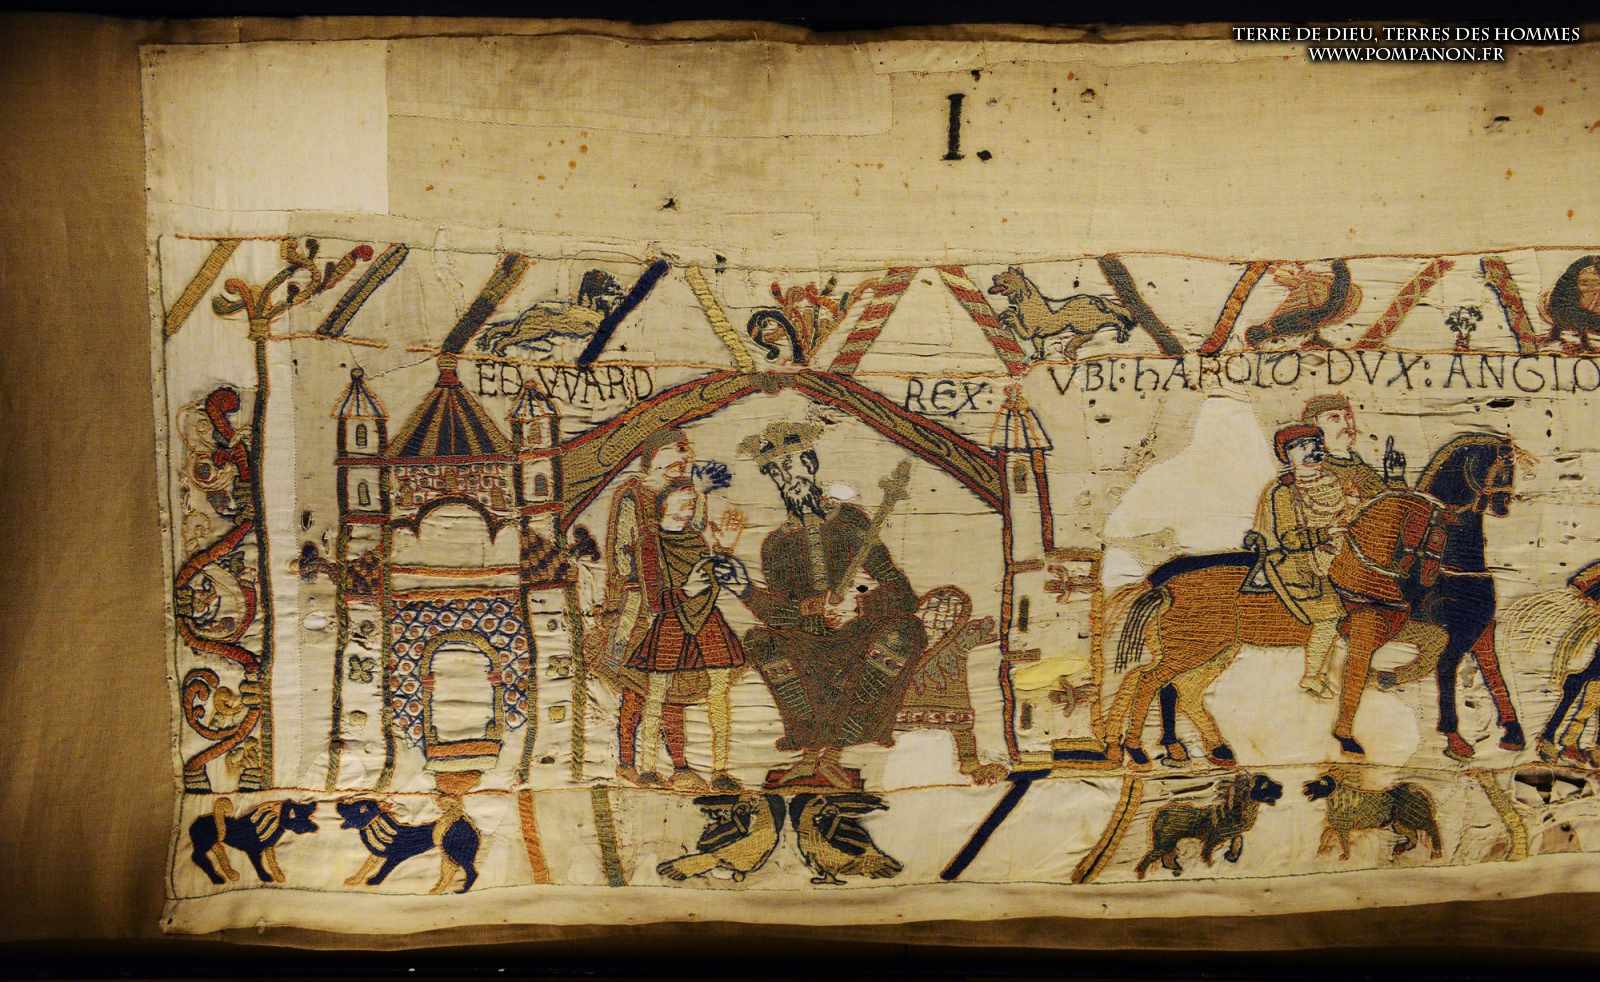 TERRE DE DIEU, TERRES DES HOMMES
WWW.POMPANON.FR
I.
EDWARD REX: VBI: hAROLD DVX: ANGLO